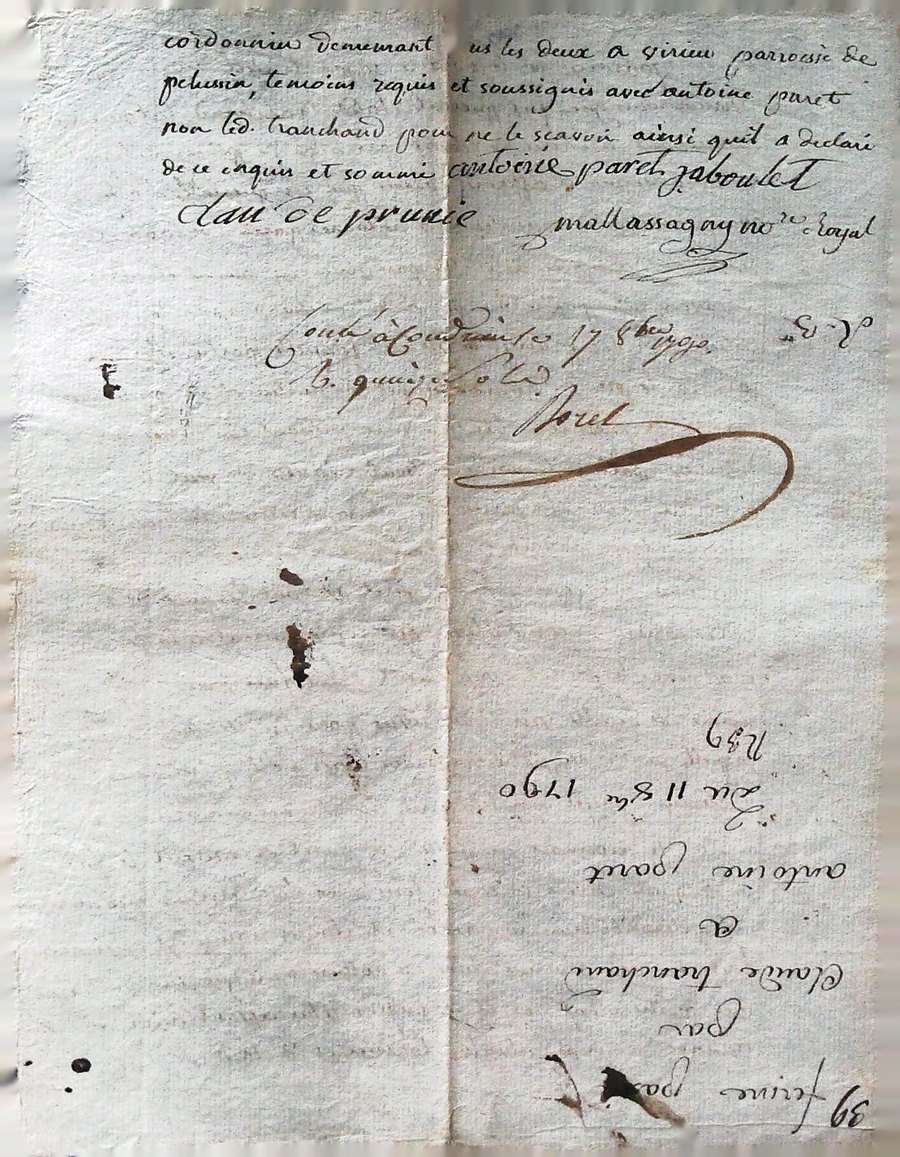 cordonnier demeurant us les deux a virieu parroisse de
pelussin, temoins requis et soussignés avec antoine paret
non led. tranchand pour ne le scavoir ainsi quil a declaré
de ce enquis et sommé antoine paret jaboulet
claude prunie mallassagny nore Royal
Conlé à Condrieu le 17 8bre 1790.
R. quinze sols
Borel
39
ferme
par
Claude tranchand
a
antoine paret
Du 11 8bre 1790
N 39